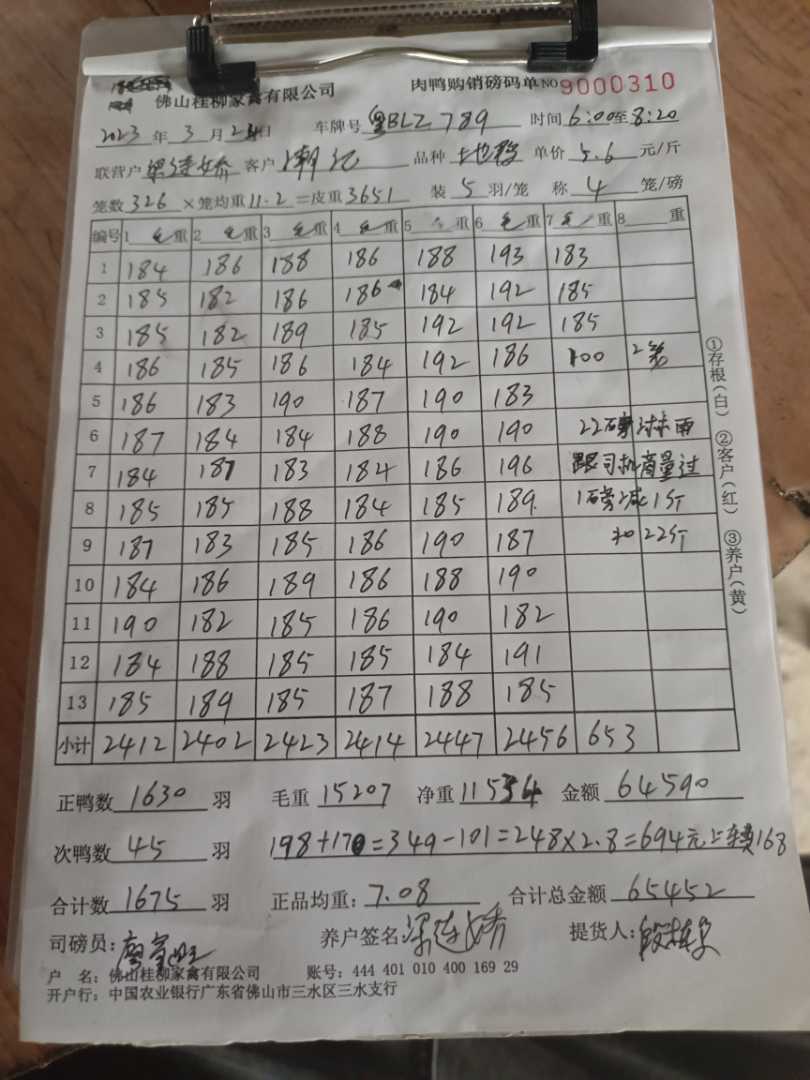 佛山桂柳家禽有限公司 肉鸭购销磅码单 NO 9000310
2023年3月24日 车牌号 粤BLZ789 时间6:00至8:20
联营户 梁连娇 客户 潮记 品种 单价5.6元/斤
笼数326×笼均重11.2=皮重3651 装5羽/笼 称4笼/磅
编号 1毛重 2毛重 3毛重 4毛重 5重 6毛重 7毛重 8重
1 184 186 188 186 188 193 183
2 185 182 186 186 184 192 185
3 185 182 189 185 192 192 185
4 186 185 186 184 192 186 100 2笼
5 186 183 190 187 190 183
6 187 184 184 188 190 190 22磅过卡雨
7 184 187 183 184 186 196 跟司机商量过
8 185 185 188 184 185 189 1磅减1斤
9 187 183 185 186 190 187 扣22斤
10 184 186 189 186 188 190
11 190 182 185 186 190 182
12 184 188 185 185 184 191
13 185 189 185 187 188 185
小计 2412 2402 2423 2414 2447 2456 653
①存根(白) ②客户(红) ③养户(黄)
正鸭数1630羽 毛重15207 净重11534 金额64590
次鸭数45羽 198+170=349-101=248×2.8=694元上车费168
合计数1675羽 正品均重:7.08 合计总金额65452
司磅员: 养户签名:梁连娇 提货人:
户 名:佛山桂柳家禽有限公司 账号:444 401 010 400 169 29
开户行:中国农业银行广东省佛山市三水区三水支行